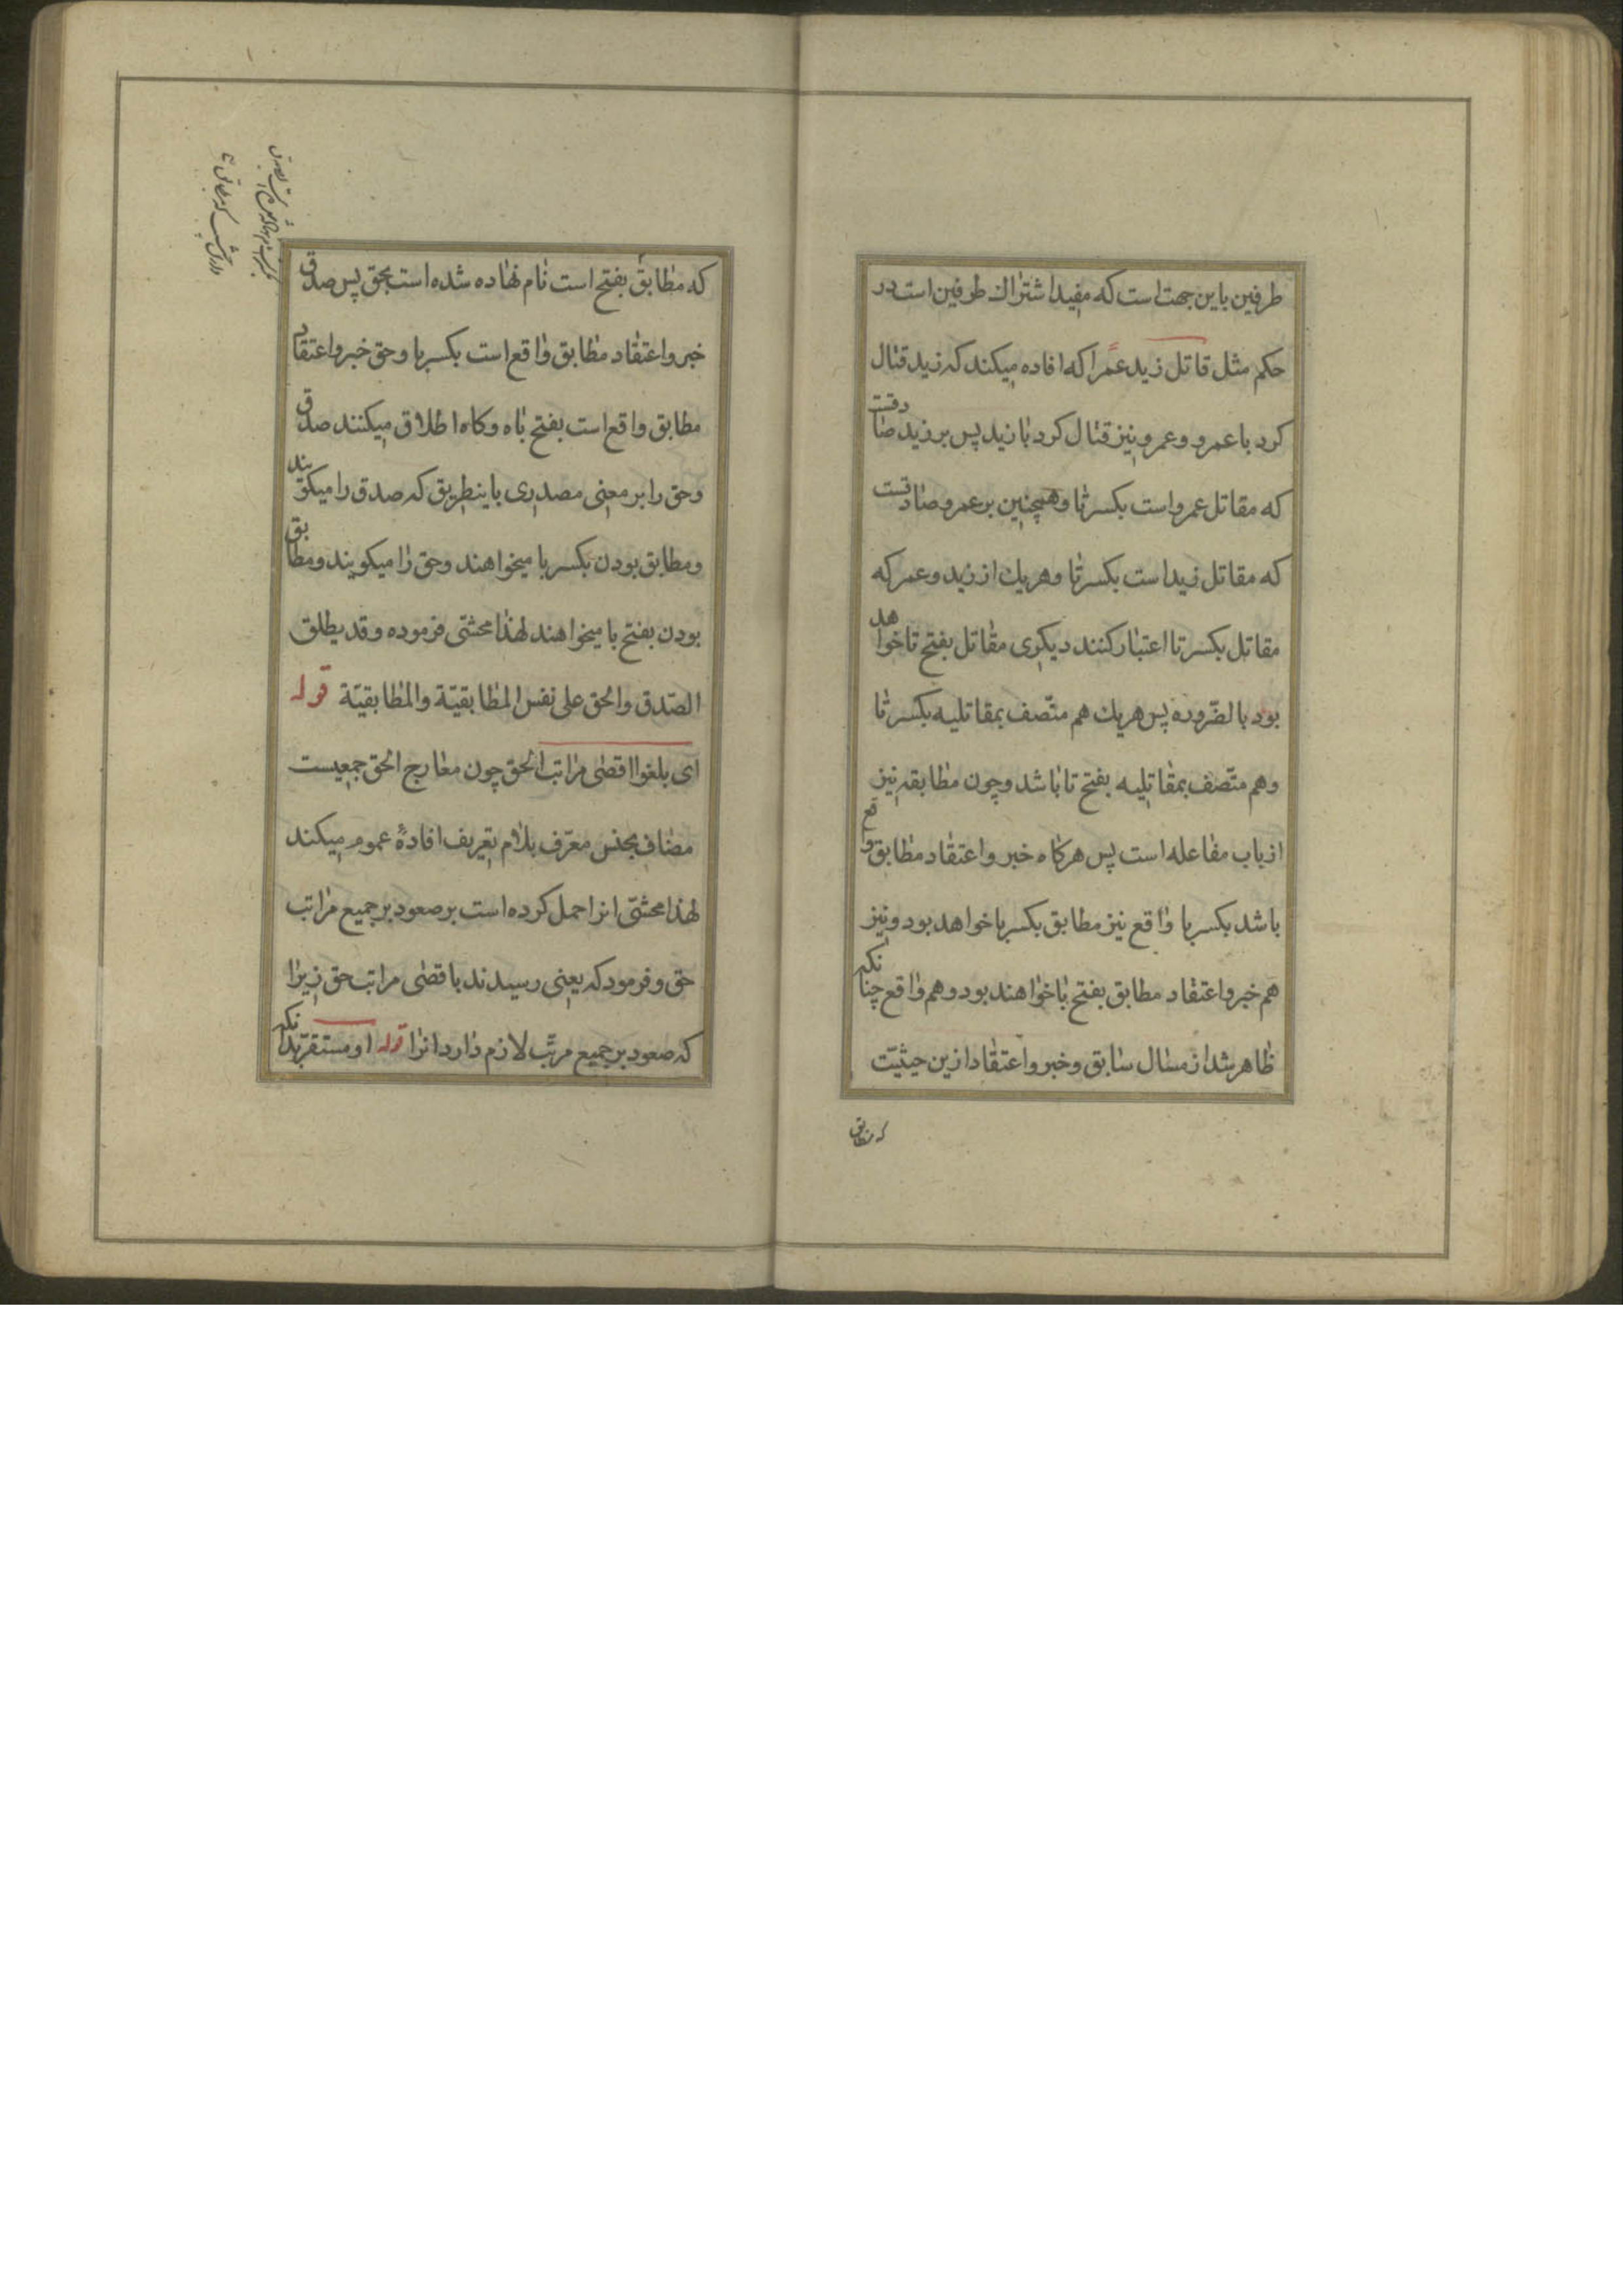 طرفین باین جهت است که مفید اشتراك طرفین است در
حکم مثل قاتل زید عمرا که افاده میکند که زید قتال
کرد با عمرو و عمرو نیز قتال کرد با زید پس بر زید صادقست
که مقاتل عمرو است بکسر تا و همچنین بر عمرو صادقست
که مقاتل زید است بکسر تا و هریك از زید و عمر که
مقاتل بکسر تا اعتبار کنند دیکری مقاتل بفتح تا خواهد
بود بالضّرورة پس هریك هم متّصف بمقاتلیه بکسر تا
و هم متّصف بمقاتلیه بفتح تا باشد و چون مطابقه نیز
از باب مفاعله است پس هرکاه خبر و اعتقاد مطابق واقع
باشد بکسر با واقع نیز مطابق بکسر با خواهد بود و نیز
هم خبر و اعتقاد مطابق بفتح با خواهند بود و هم واقع چنانکه
ظاهر شد از مسال سابق و خبر و اعتقاد ازین حیثیّت
که مطابق
که مطابق بفتح است نام نهاده شده است بحق پس صدق
خبر و اعتقاد مطابق واقع است بکسر با و حق خبر و اعتقاد
مطابق واقع است بفتح باه و کاه اطلاق میکنند صدق
و حق را بر معنی مصدری باینطریق که صدق را میکویند
و مطابق بودن بکسر با میخواهند و حق را میکویند و مطابق
بودن بفتح با میخواهند لهذا محشّی فرموده و قد یطلق
الصّدق والحق علی نفس المطابقیّة والمطابقیّة قوله
ای بلغوا اقصی مراتب الحق چون معارج الحق جمعیست
مضاف بجنس معرّف بلام تعریف افادهٔ عموم میکند
لهذا محشّی انرا حمل کرده است بر صعود بر جمیع مراتب
حق و فرمود که یعنی رسیدند باقصی مراتب حق زیرا
که صعود بر جمیع مرتّب لازم دارد انرا قوله او مستقرّ بدانکه